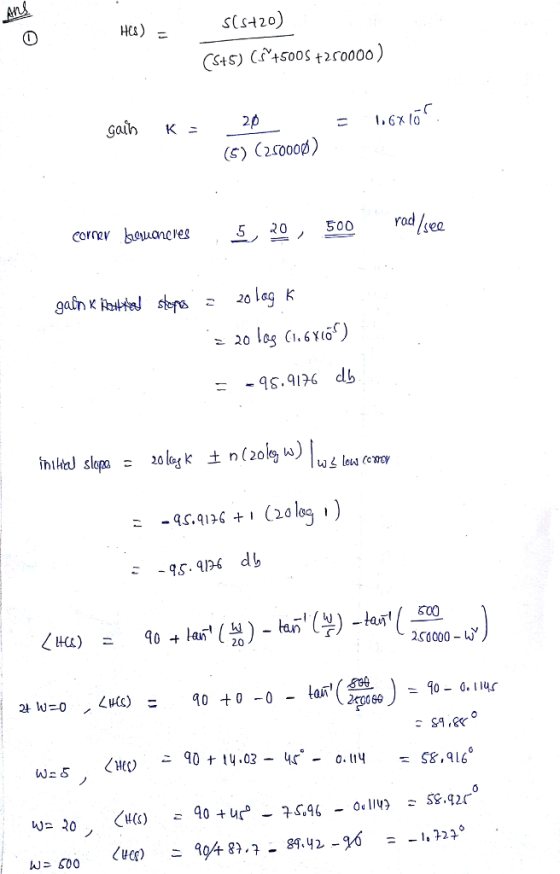 Ans
① H(s) = s(s+20) / (s+5) (s²+500s+250000)
gain K = 20 / (5) (250000) = 1.6×10⁻⁵.
corner 5, 20, 500 rad/sec
gain K slope = 20 log K
= 20 log (1.6×10⁻⁵)
= -95.9176 db
initial slope = 20 log K ± n(20 log w) | w≤ low corner
= -95.9176 + 1 (20 log 1)
= -95.9176 db
∠H(s) = 90 + tan⁻¹(w/20) - tan⁻¹(w/5) - tan⁻¹(500/250000-w²)
at w=0, ∠H(s) = 90 + 0 - 0 - tan⁻¹(500/250000) = 90 - 0.1145
= 89.88°
w=5, ∠H(s) = 90 + 14.03 - 45° - 0.114 = 58.916°
w=20, ∠H(s) = 90 + 45° - 75.96 - 0.1147 = 58.925°
w=500 ∠H(s) = 90 + 87.7 - 89.42 - 90 = -1.727°